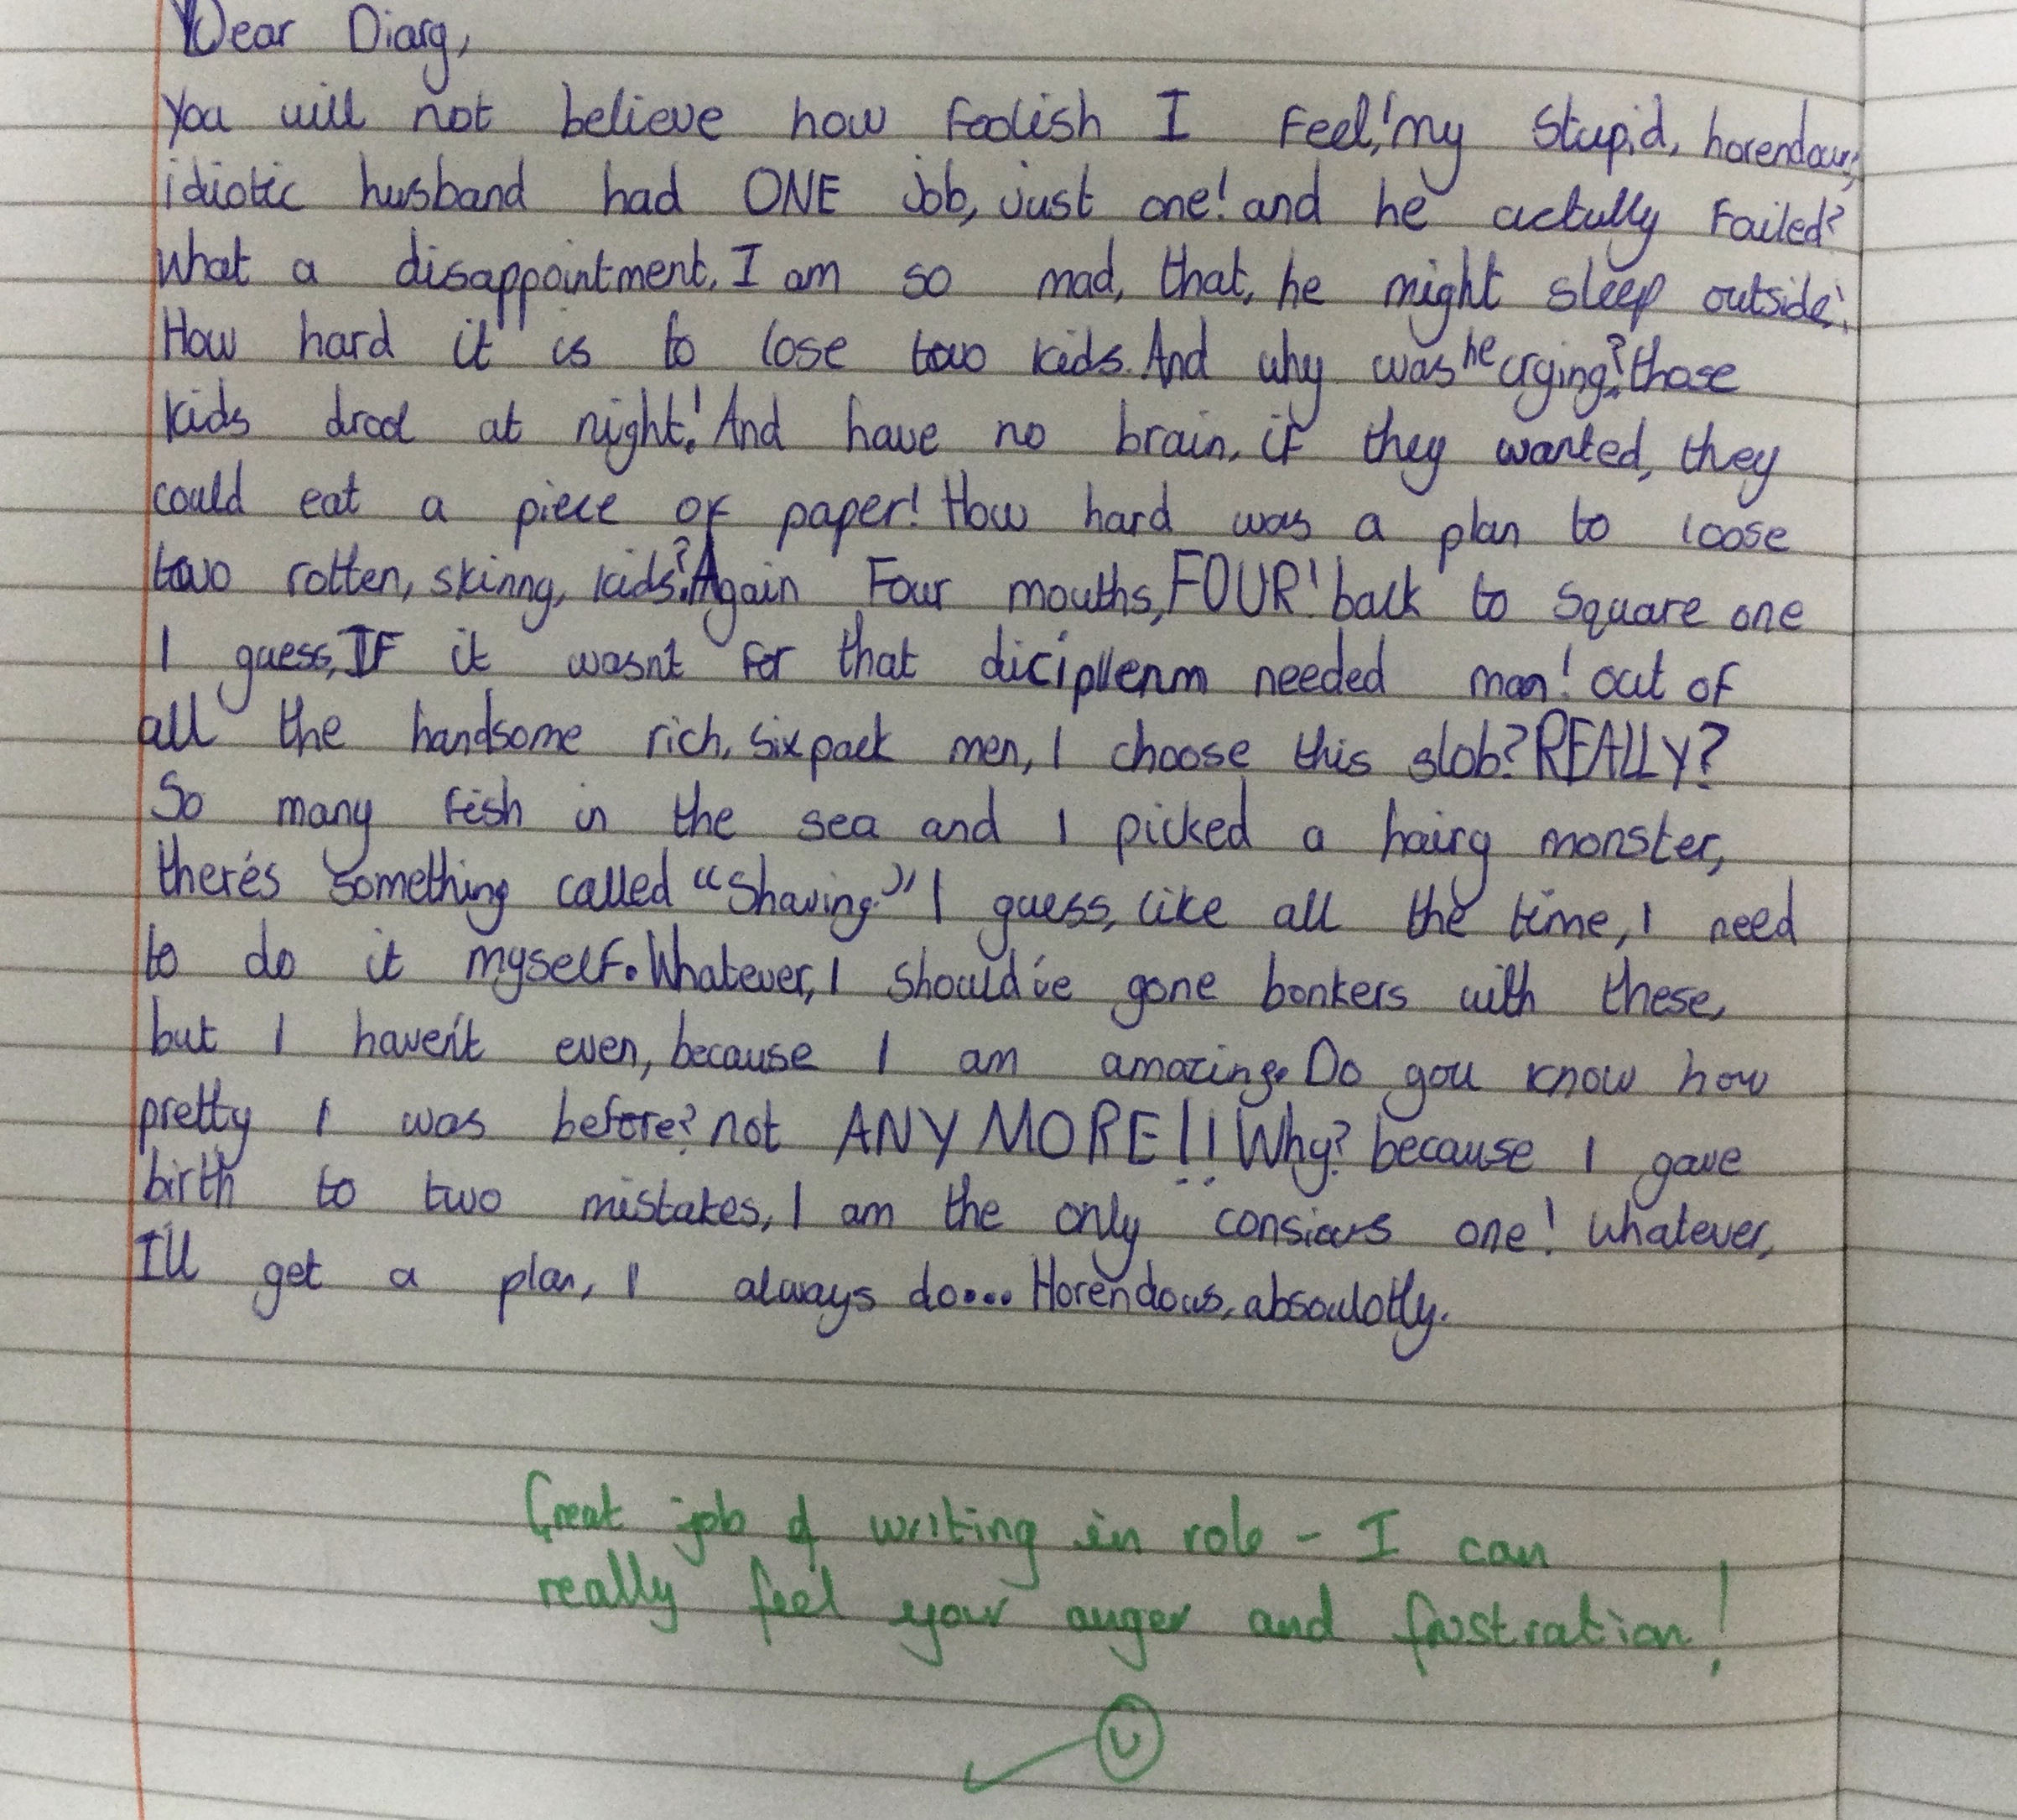 Dear Diary,
You will not believe how foolish I feel! my stupid, horendous,
idiotic husband had ONE job, just one! and he actully failed?
what a disappointment. I am so mad, that, he might sleep outside!
How hard it is to lose two kids. And why was he crying? those
kids drool at night! And have no brain, if they wanted, they
could eat a piece of paper! How hard was a plan to loose
two rotten, skinny, kids? Again Four mouths, FOUR! back to square one
I guess, IF it wasnt for that diciplenm needed man! out of
all the handsome rich, six pack men, I choose this slob? REALLY?
So many fish in the sea and I picked a hairy monster,
there's something called "Shaving" I guess, like all the time, I need
to do it myself. Whatever, I should've gone bonkers with these,
but I haven't even, because I am amazing. Do you know how
pretty I was before? not ANYMORE!! Why? because I gave
birth to two mistakes, I am the only consious one! whatever,
I'll get a plan, I always do... Horendous, absoulotly.
Great job of writing in role - I can
really feel your anger and frustration!